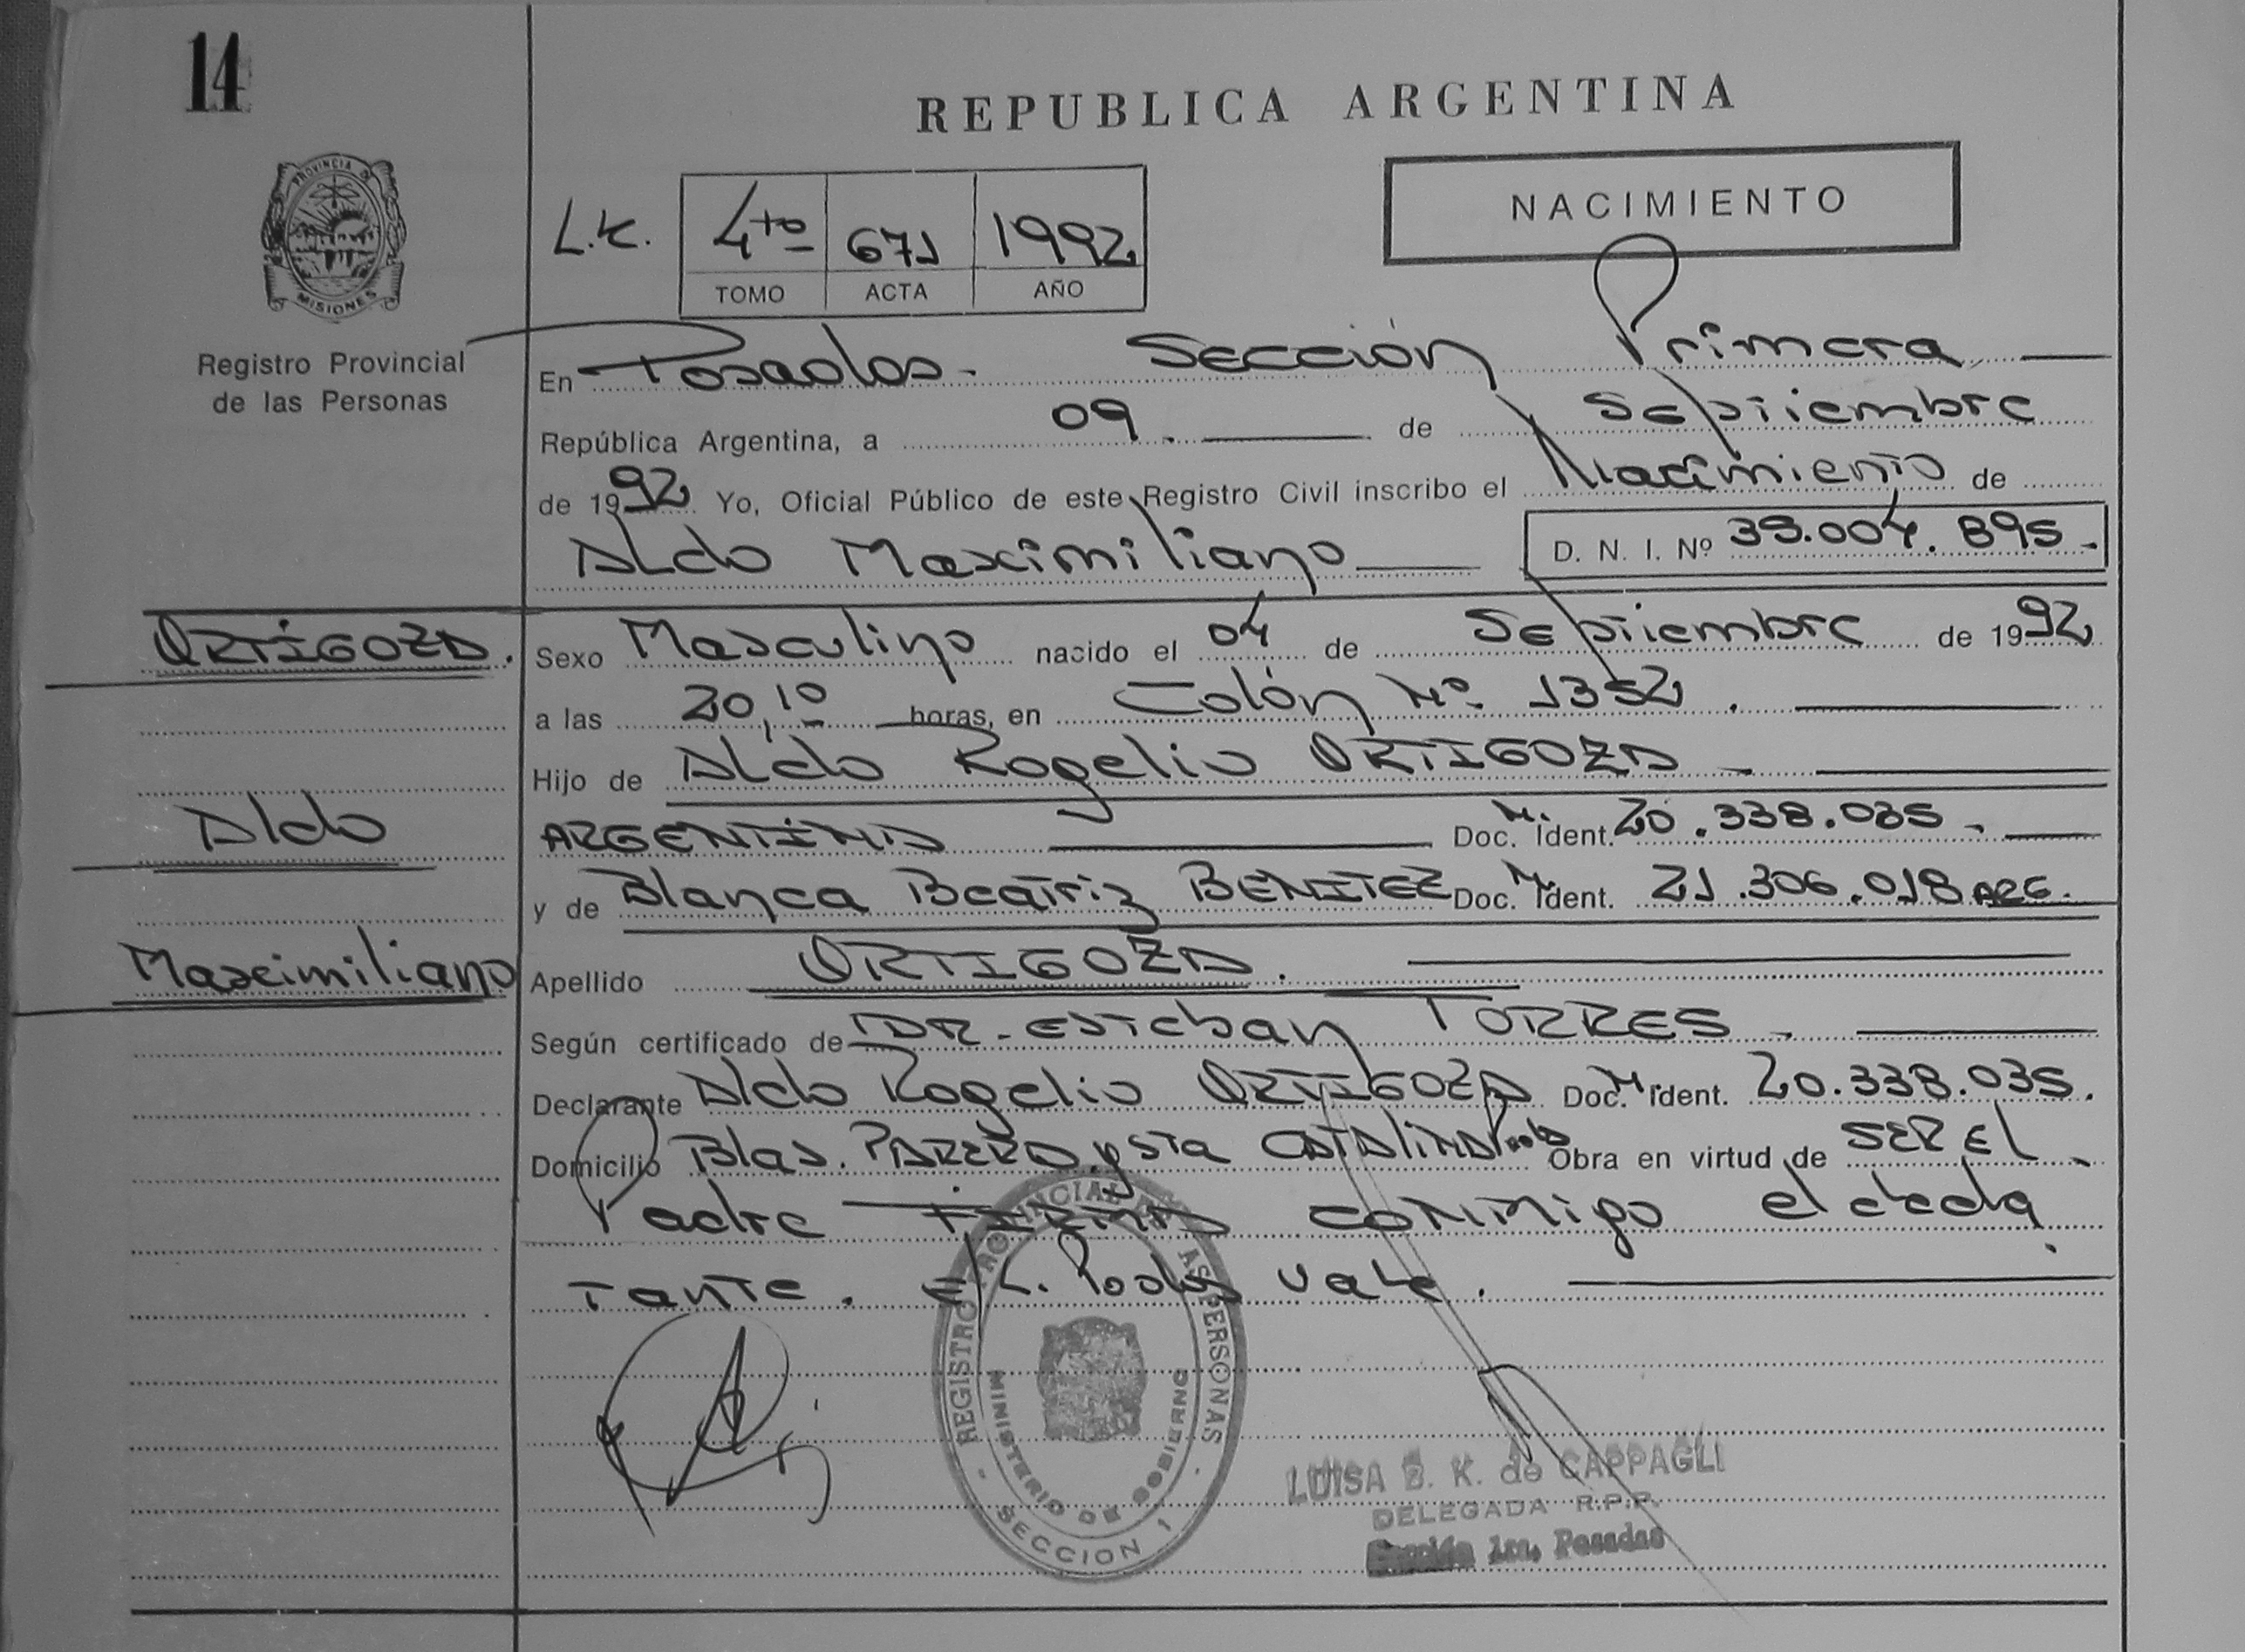 14
REPUBLICA ARGENTINA
NACIMIENTO
PROVINCIA DE
MISIONES
L.K. 4to 671 1992
TOMO ACTA AÑO
Registro Provincial
de las Personas
En Posadas. Sección Primera
República Argentina, a 09. de Septiembre
de 1992 Yo, Oficial Público de este Registro Civil inscribo el Nacimiento de
Aldo Maximiliano D. N. I. Nº 39.004.895.
ORTIGOZA. Sexo Masculino nacido el 04 de Septiembre de 1992
a las 20,10 horas, en Colón Nº 1352.
Hijo de Aldo Rogelio ORTIGOZA
Aldo
ARGENTINA Doc. M. Ident. 20.338.035.
y de Blanca Beatriz BENITEZ Doc. M. Ident. 21.306.018 ARG.
Maximiliano Apellido ORTIGOZA.
Según certificado de DR. Esteban TORRES.
Declarante Aldo Rogelio ORTIGOZA Doc. M. Ident. 20.338.035.
Domicilio Blas. PARERA y sta CATALINA Obra en virtud de SER El
Padre FIRMA conmigo el decla
rante. E/L. Podos vale.
REGISTRO PROVINCIAL DE LAS PERSONAS
MINISTERIO DE GOBIERNO
- SECCION 1 -
LUISA B. K. de CAPPAGLI
DELEGADA R.P.P.
Sección 1ra. Posadas